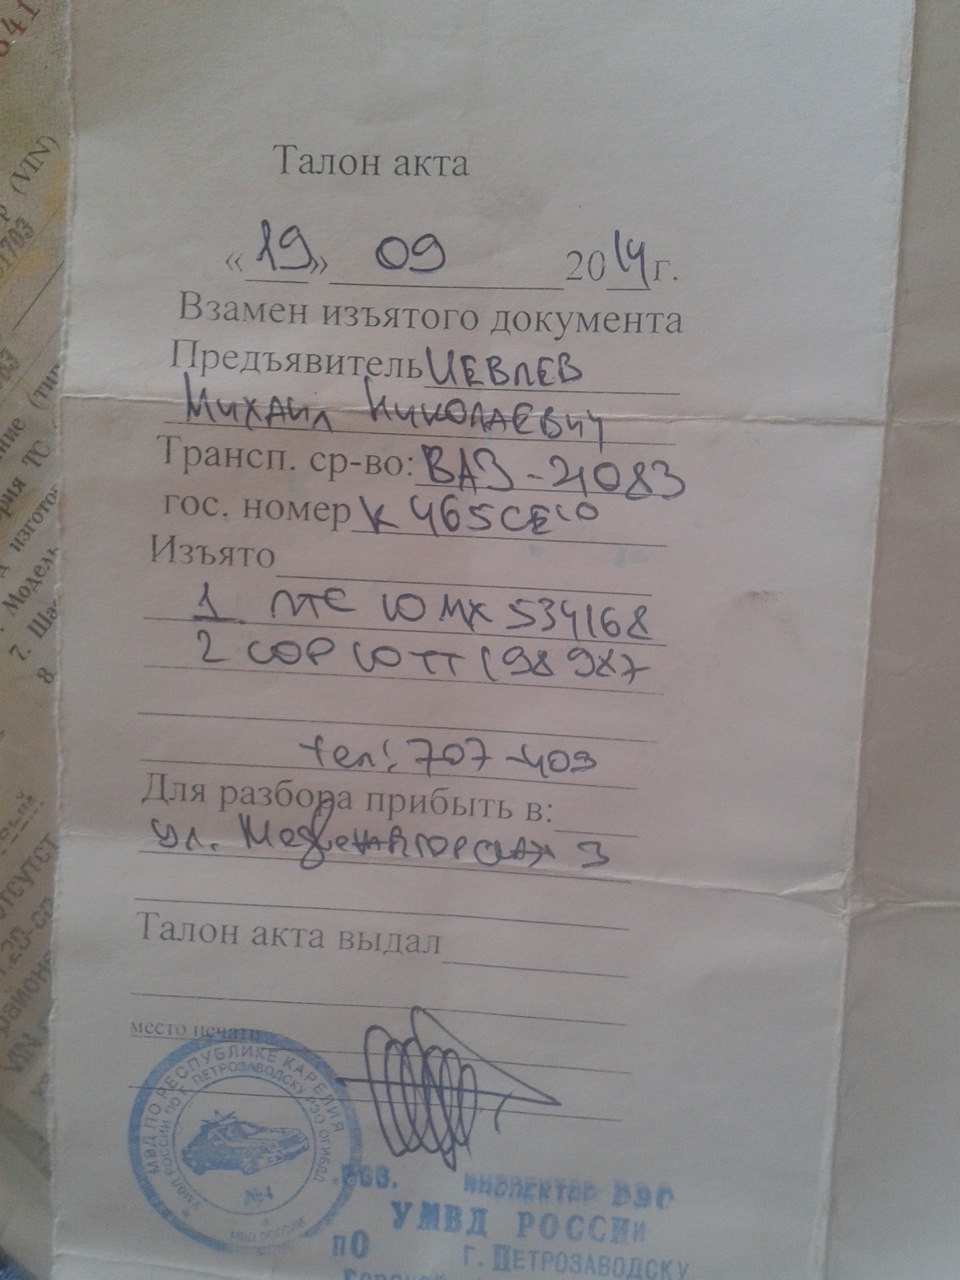 Талон акта
«19» 09 2014г.
Взамен изъятого документа
Предъявитель ИЕВЛЕВ
Михаил Николаевич
Трансп. ср-во: ВАЗ-21083
гос. номер К 465 СЕ 10
Изъято
1 ПТС 10 МК 534168
2 СОР 10 ТТ 198987
тел: 707-403
Для разбора прибыть в:
ул. Медвежьегорская 3
Талон акта выдал
место печати
МВД ПО РЕСПУБЛИКЕ КАРЕЛИЯ
УМВД РОССИИ ПО Г. ПЕТРОЗАВОДСКУ РЭО ОГИБДД
№4
ИНСПЕКТОР РЭО
УМВД РОССИИ
ПО Г. ПЕТРОЗАВОДСКУ
р (VIN)
ние (тип
ория ТС
д изготов
Модель
7. Ша
8.
ОТСУТСТ
VIN